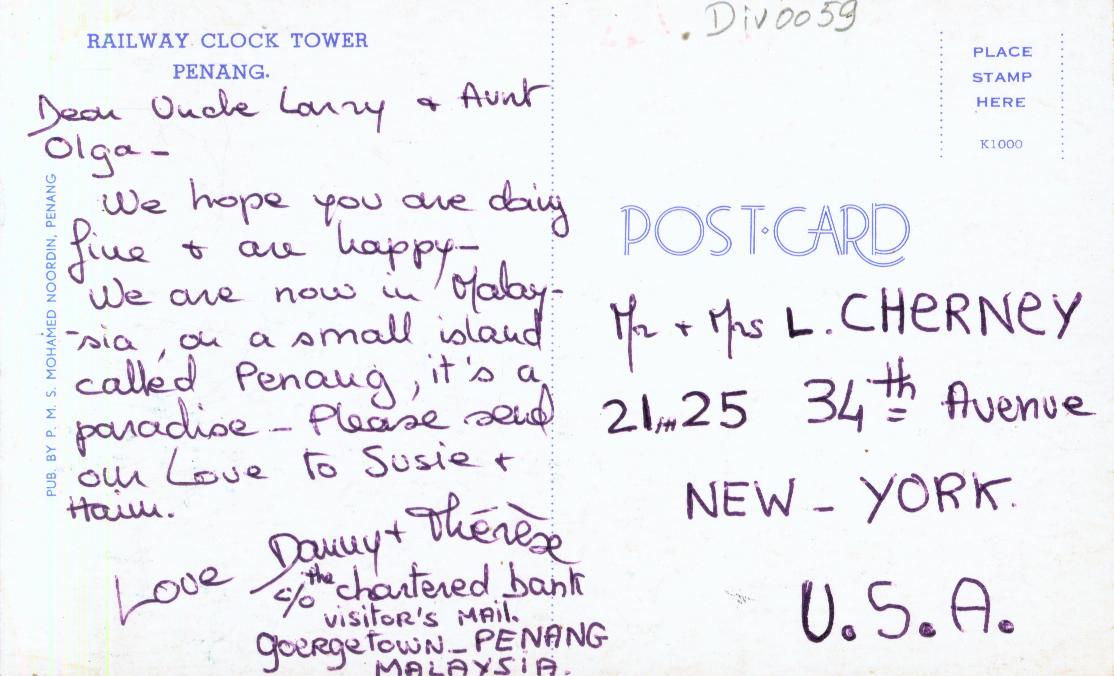 Div0059
RAILWAY CLOCK TOWER
PENANG.
PLACE
STAMP
HERE
K1000
PUB. BY P. M. S. MOHAMED NOORDIN, PENANG
Dear Uncle Larry & Aunt
Olga -
We hope you are doing
fine & are happy -
We are now in Malay-
-sia, on a small island
called Penang, it's a
paradise - Please send
our Love to Susie +
Haim.
Love Danny + Thérèse
c/o the chartered bank
visitor's MAil.
goergetown - PENANG
MALAYSIA.
POST·CARD
Mr + Mrs L. CHERNEY
21 25 34th Avenue
NEW - YORK.
U.S.A.